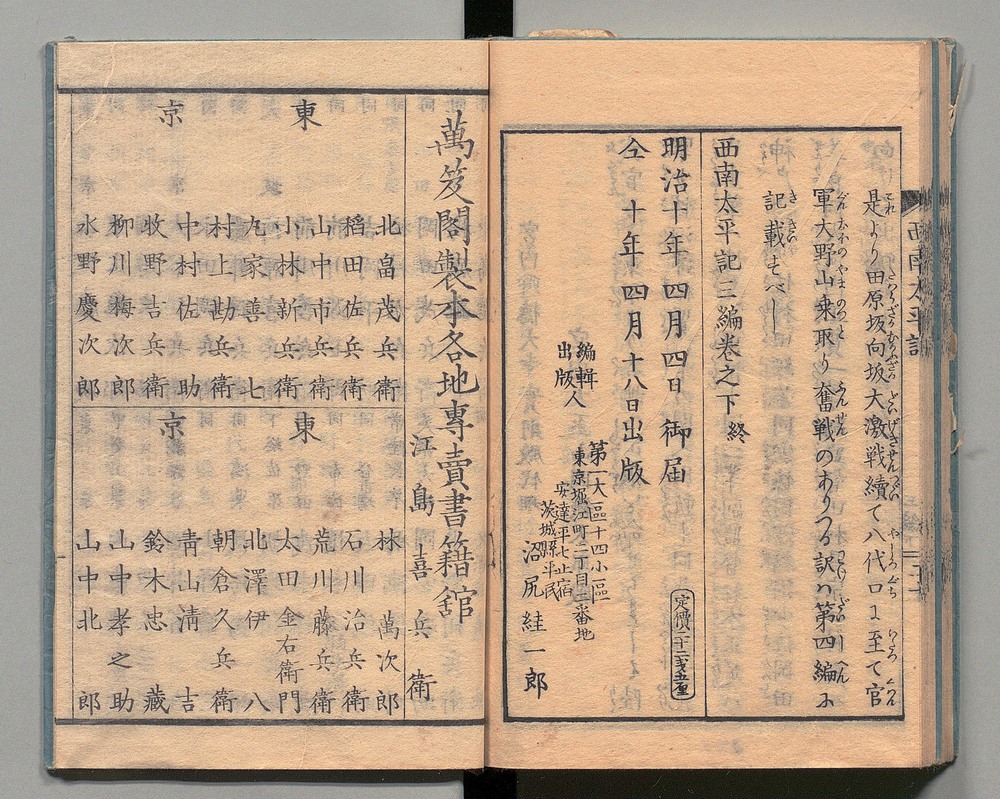 西南太平記
是より田原坂向坂大激戦續て八代口に至て官
軍大野山乗取り奮戦のありつる訳ハ第四編に
記載すべし
西南太平記三編巻之下終
明治十年四月四日御届
仝十年四月十八日出版
定價二十二戔五厘
編輯
出版人
第一大區十四小區
東京堀江町二丁目二番地
安達平七止宿
茨城縣平民
沼尻絓一郎
萬笈閣製本各地專賣書籍舘
江島喜兵衛
東京
北畠茂兵衛
稻田佐兵衛
山中市兵衛
小林新兵衛
丸家善七
村上勘兵衛
中村佐助
牧野吉兵衛
柳川梅次郎
水野慶次郎
東京
林萬次郎
石川治兵衛
荒川藤兵衛
太田金右衛門
北澤伊八
朝倉久兵衛
青山清吉
鈴木忠藏
山中孝之助
山中北郎